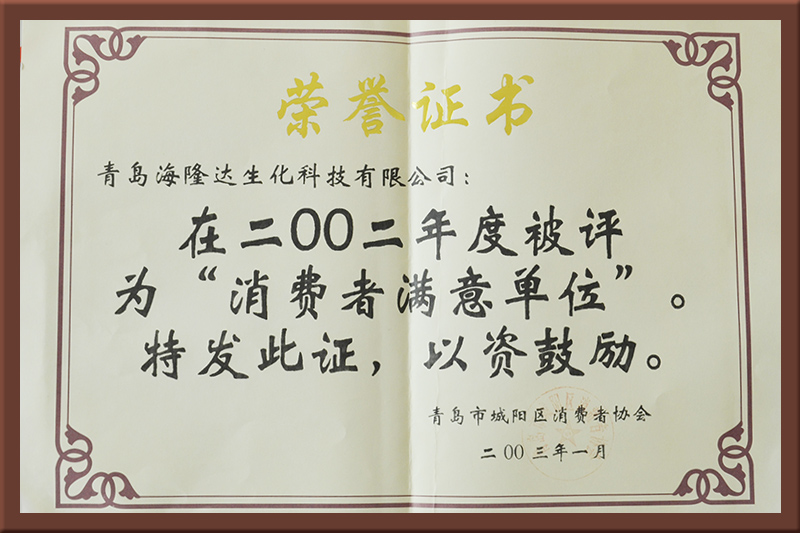 荣誉证书
青岛海隆达生化科技有限公司：
在二00二年度被评
为“消费者满意单位”。
特发此证，以资鼓励。
青岛市城阳区消费者协会
二00三年一月